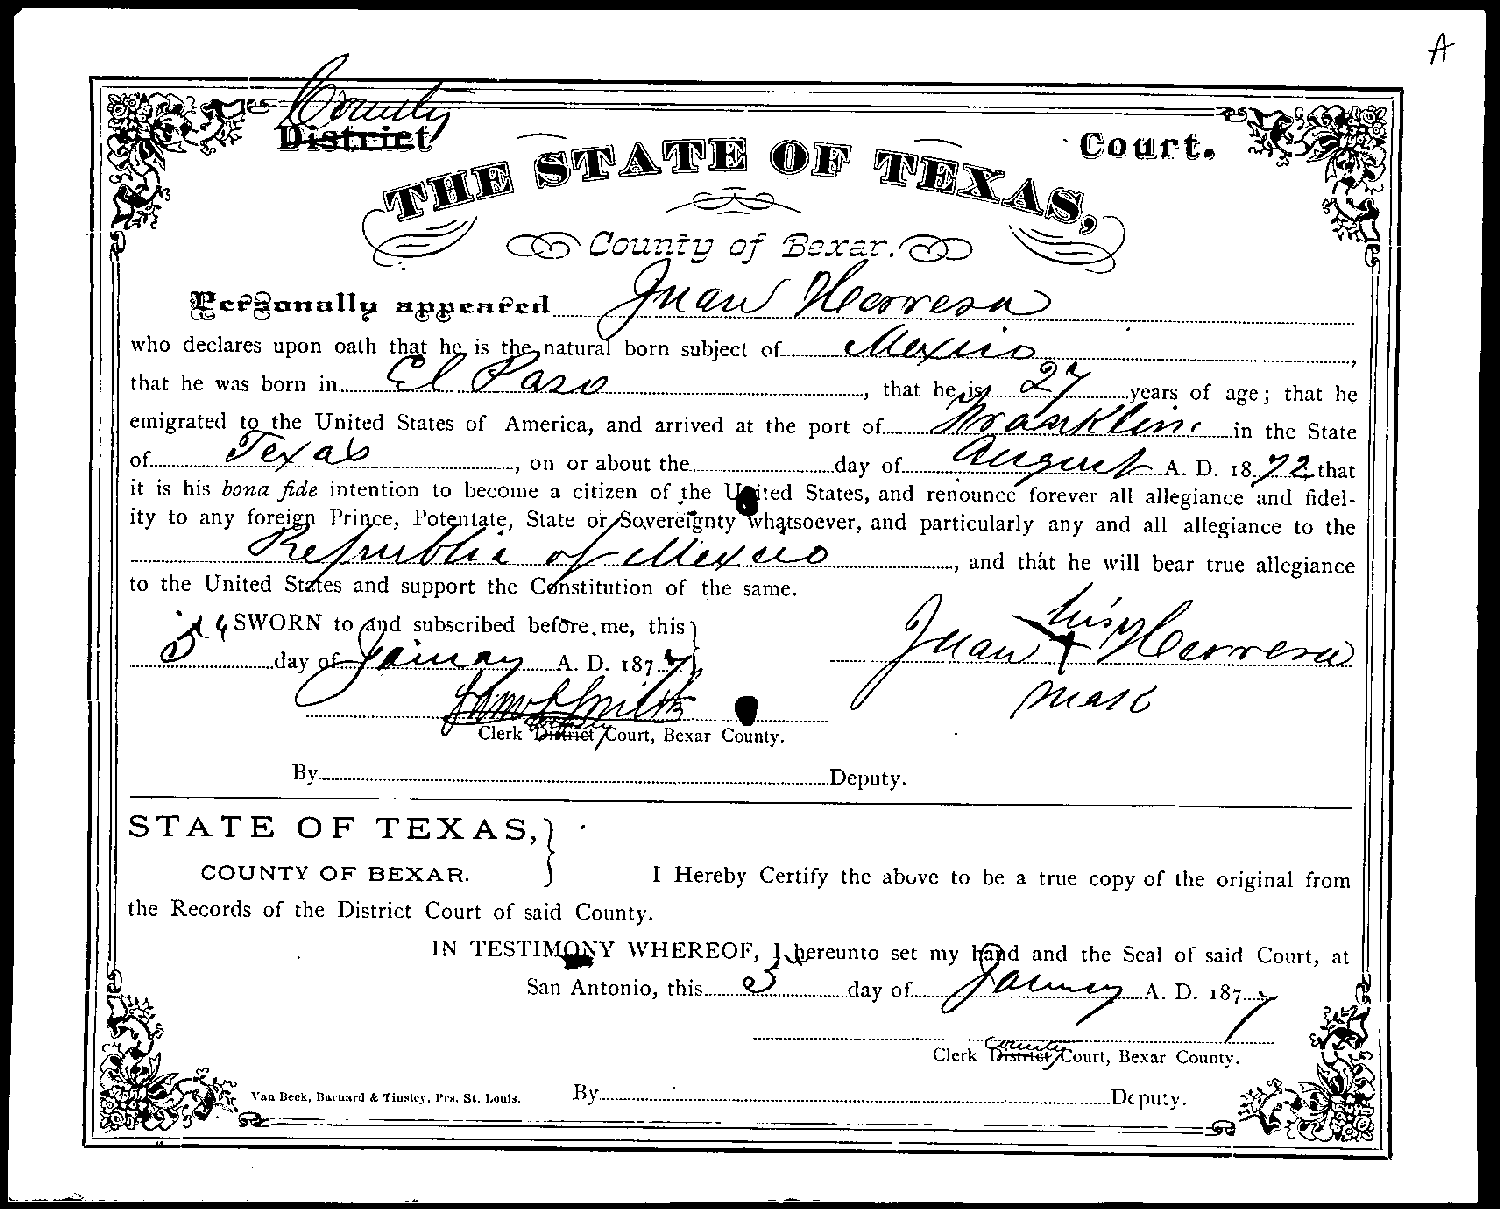 A
County
District Court.
THE STATE OF TEXAS,
County of Bexar.
Personally appeared Juan Herrera
who declares upon oath that he is the natural born subject of Mexico,
that he was born in El Paso, that he is 27 years of age; that he
emigrated to the United States of America, and arrived at the port of Franklin in the State
of Texas, on or about the day of August A. D. 1872 that
it is his bona fide intention to become a citizen of the United States, and renounce forever all allegiance and fidel-
ity to any foreign Prince, Potentate, State or Sovereignty whatsoever, and particularly any and all allegiance to the
Republic of Mexico, and that he will bear true allegiance
to the United States and support the Constitution of the same.
SWORN to and subscribed before me, this
day of January A. D. 1877
his
Juan X Herrera
mark
Clerk District County Court, Bexar County.
By Deputy.
STATE OF TEXAS,
COUNTY OF BEXAR.
I Hereby Certify the above to be a true copy of the original from
the Records of the District Court of said County.
IN TESTIMONY WHEREOF, I hereunto set my hand and the Seal of said Court, at
San Antonio, this 3 day of January A. D. 1877
Clerk District County Court, Bexar County.
Van Beek, Barnard & Tinsley, Prs. St. Louis.
By Deputy.